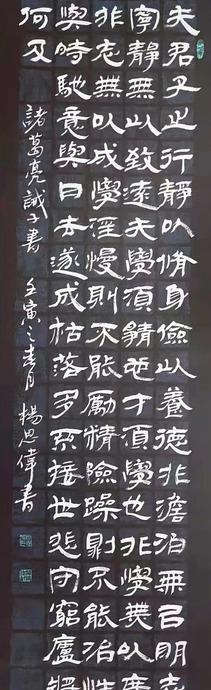 夫君子之行靜以脩身儉以養德非澹泊無以明志
寧靜無以致遠夫學須靜也才須學也非學無以廣
非志無以成學淫慢則不能勵精險躁則不能治性
與時馳意與日去遂成枯落多不接世悲守窮廬將
何及
諸葛亮誡子書 壬寅之春月 楊思偉書